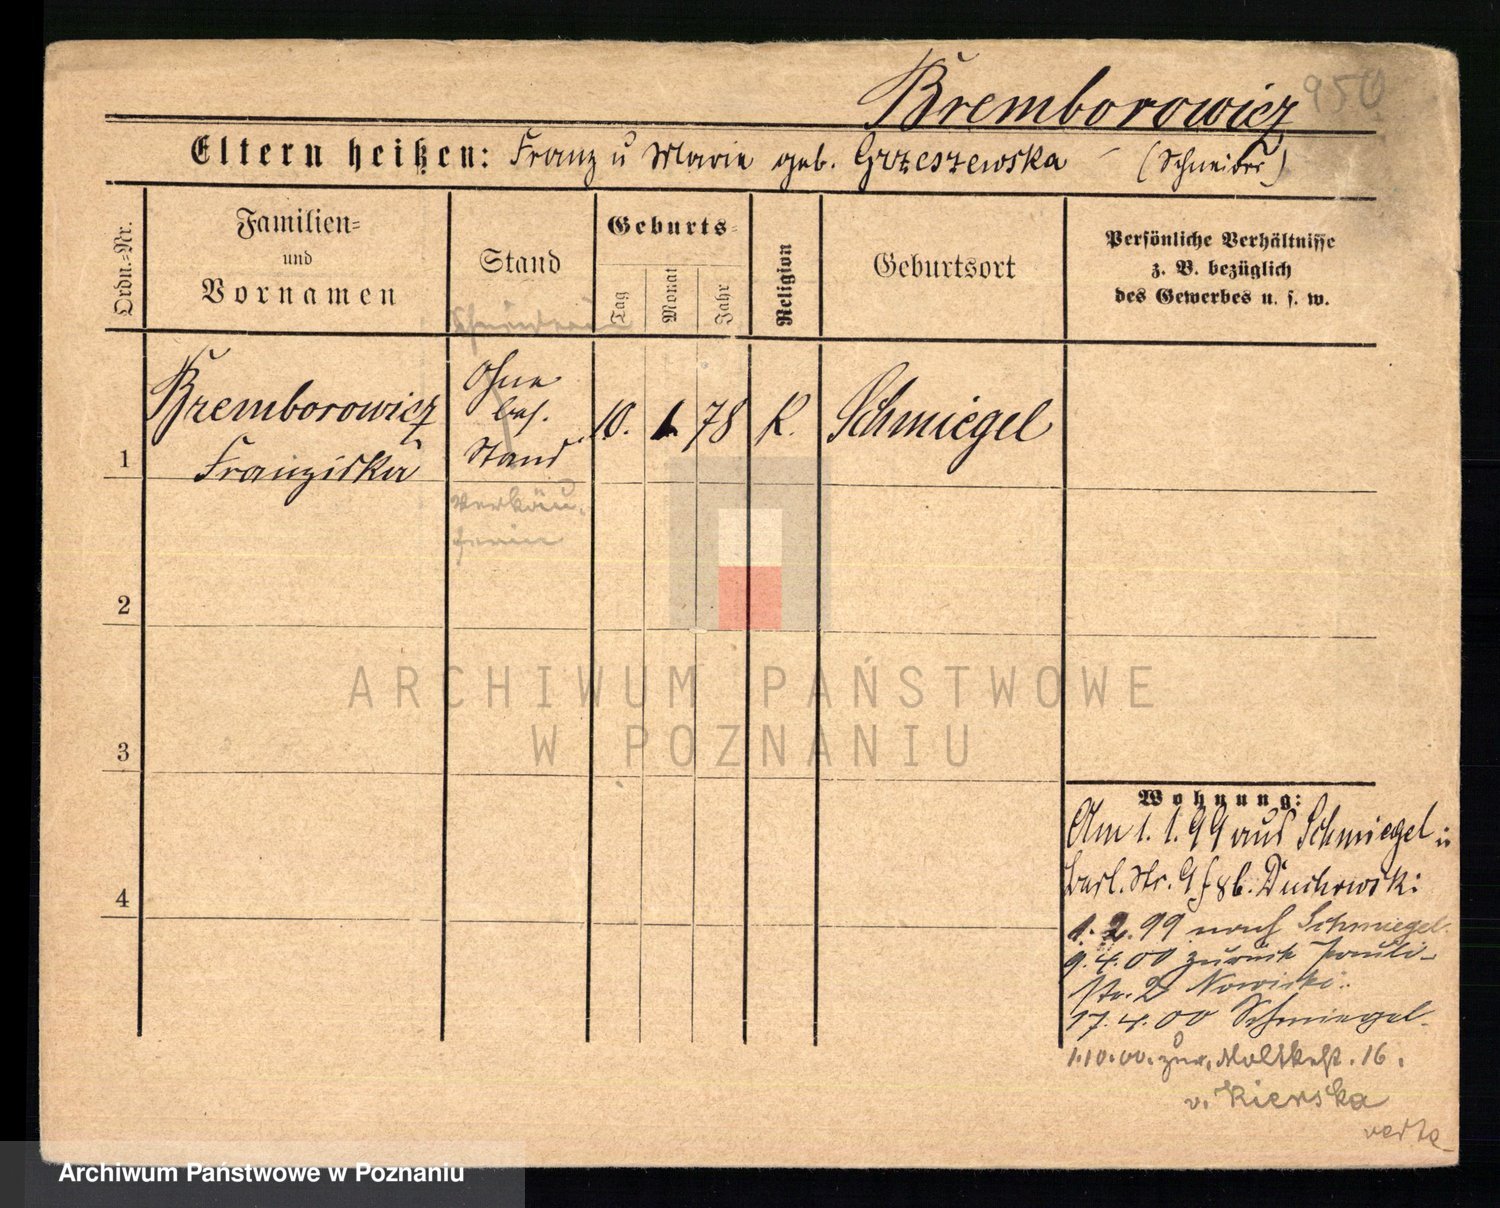 Bremborowicz
950
Eltern heißen: Franz u Marie geb. Grzeszewska – (Schneider)
Ordn.-Nr.
Familien-
und
Vornamen
Stand
Geburts-
Tag
Monat
Jahr
Religion
Geburtsort
Persönliche Verhältnisse
z. B. bezüglich
des Gewerbes u. s. w.
1
Bremborowicz
Franziska
Ohne
bes.
Stand
10. 1. 78
K.
Schmiegel
Verkäu-
ferin
2
3
4
ARCHIWUM PAŃSTWOWE
W POZNANIU
Wohnung:
Am 1. 1. 99 aus Schmiegel
Str. 9 b.
1. 2. 99 nach Schmiegel.
9. 4. 00 zurück Pauli-
str. 2 Nowicki.
17. 4. 00 Schmiegel.
1.10.00. zur. Moltkestr. 16.
v. Kierska
verte
Archiwum Państwowe w Poznaniu